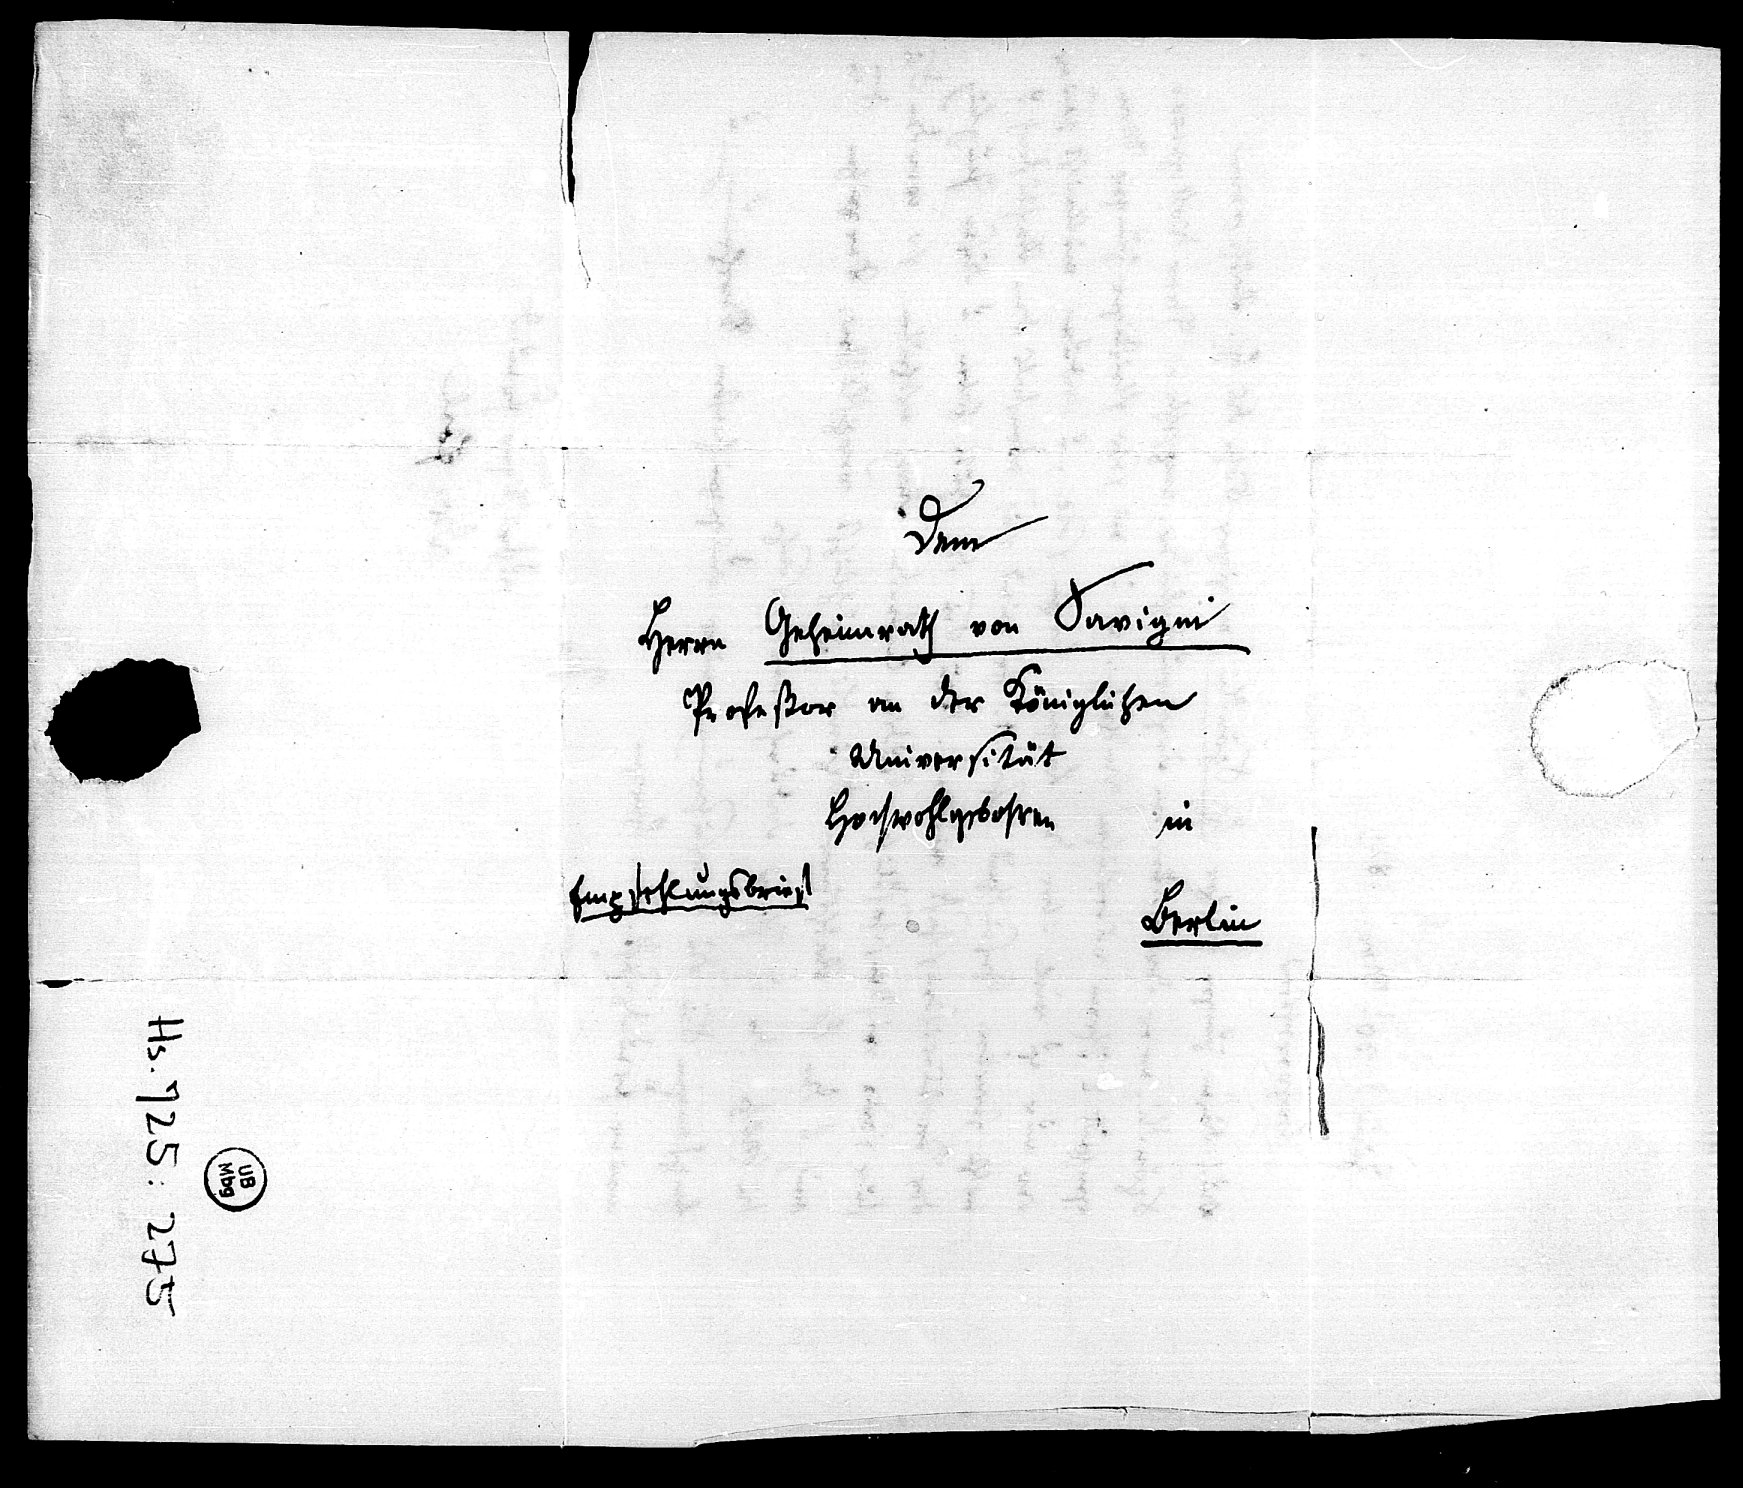 Dem
Herrn Geheimrath von Savigni
Profeßor an der Königlichen
Universität
Hochwohlgebohren in
Empfehlungsbrief
Berlin
Hs. 725: 275
UB
Mbg